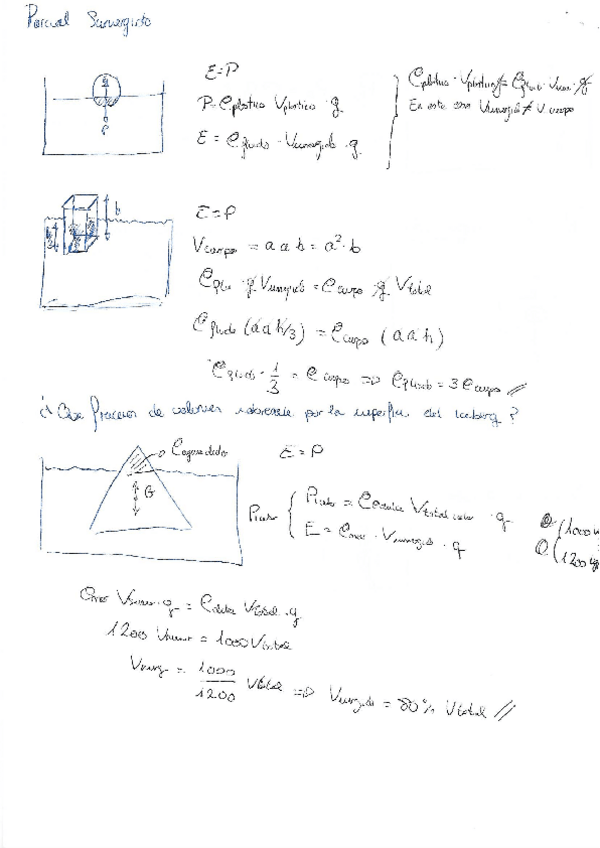 Parcial Sumergido
E=P
P = ρplastico Vplastico · g
E = ρfluido · Vsumergido · g
ρplastico · Vplastico · g = ρfluido · Vsum · g
En este caso Vsumergido ≠ V cuerpo
P
h
E=P
Vcuerpo = a a b = a² · b
ρflu · g Vsumergido = ρcuerpo · g Vtotal
ρfluido (a a h/3) = ρcuerpo (a a h)
ρfluido · 1/3 = ρcuerpo => ρfluido = 3 ρcuerpo //
¿ Que fraccion de volumen sobresale por la superficie del Iceberg ?
ρagua dulce
G
E = P
Vtotal · g
E = ρmar · Vsumergido · g
(1000
(1200
ρmar Vsumer · g = Vtotal · g
1200 Vsumer = 1000 Vtotal
Vsumerg = 1000/1200 Vtotal => Vsumergido = 80% Vtotal //